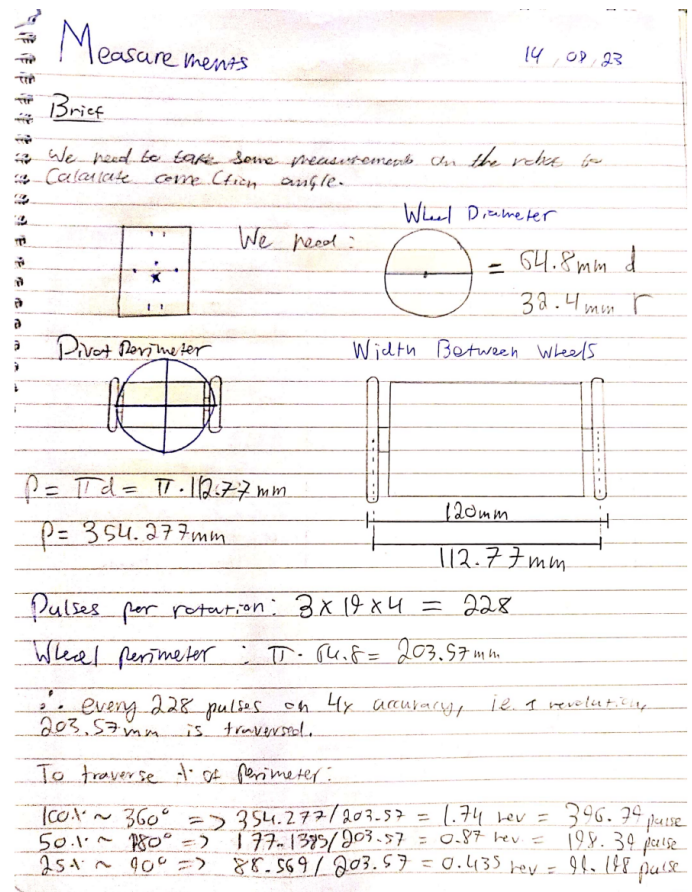 Measurements 14, 08, 23
Brief
We need to take some measurements on the robot to
Calculate correction angle.
We need:
Wheel Diameter
= 64.8mm d
32.4mm r
Pivot Perimeter
Width Between Wheels
P = πd = π·112.77mm
P = 354.277mm
120mm
112.77mm
Pulses per rotation: 3 x 19 x 4 = 228
Wheel perimeter : π · 64.8 = 203.57mm
∴ every 228 pulses on 4x accuracy, i.e. 1 revolution,
203.57mm is traversed.
To traverse % of Perimeter:
100% ~ 360° => 354.277/203.57 = 1.74 rev = 396.79 pulse
50% ~ 180° => 177.1385/203.57 = 0.87 rev = 198.39 pulse
25% ~ 90° => 88.569/203.57 = 0.435 rev = pulse